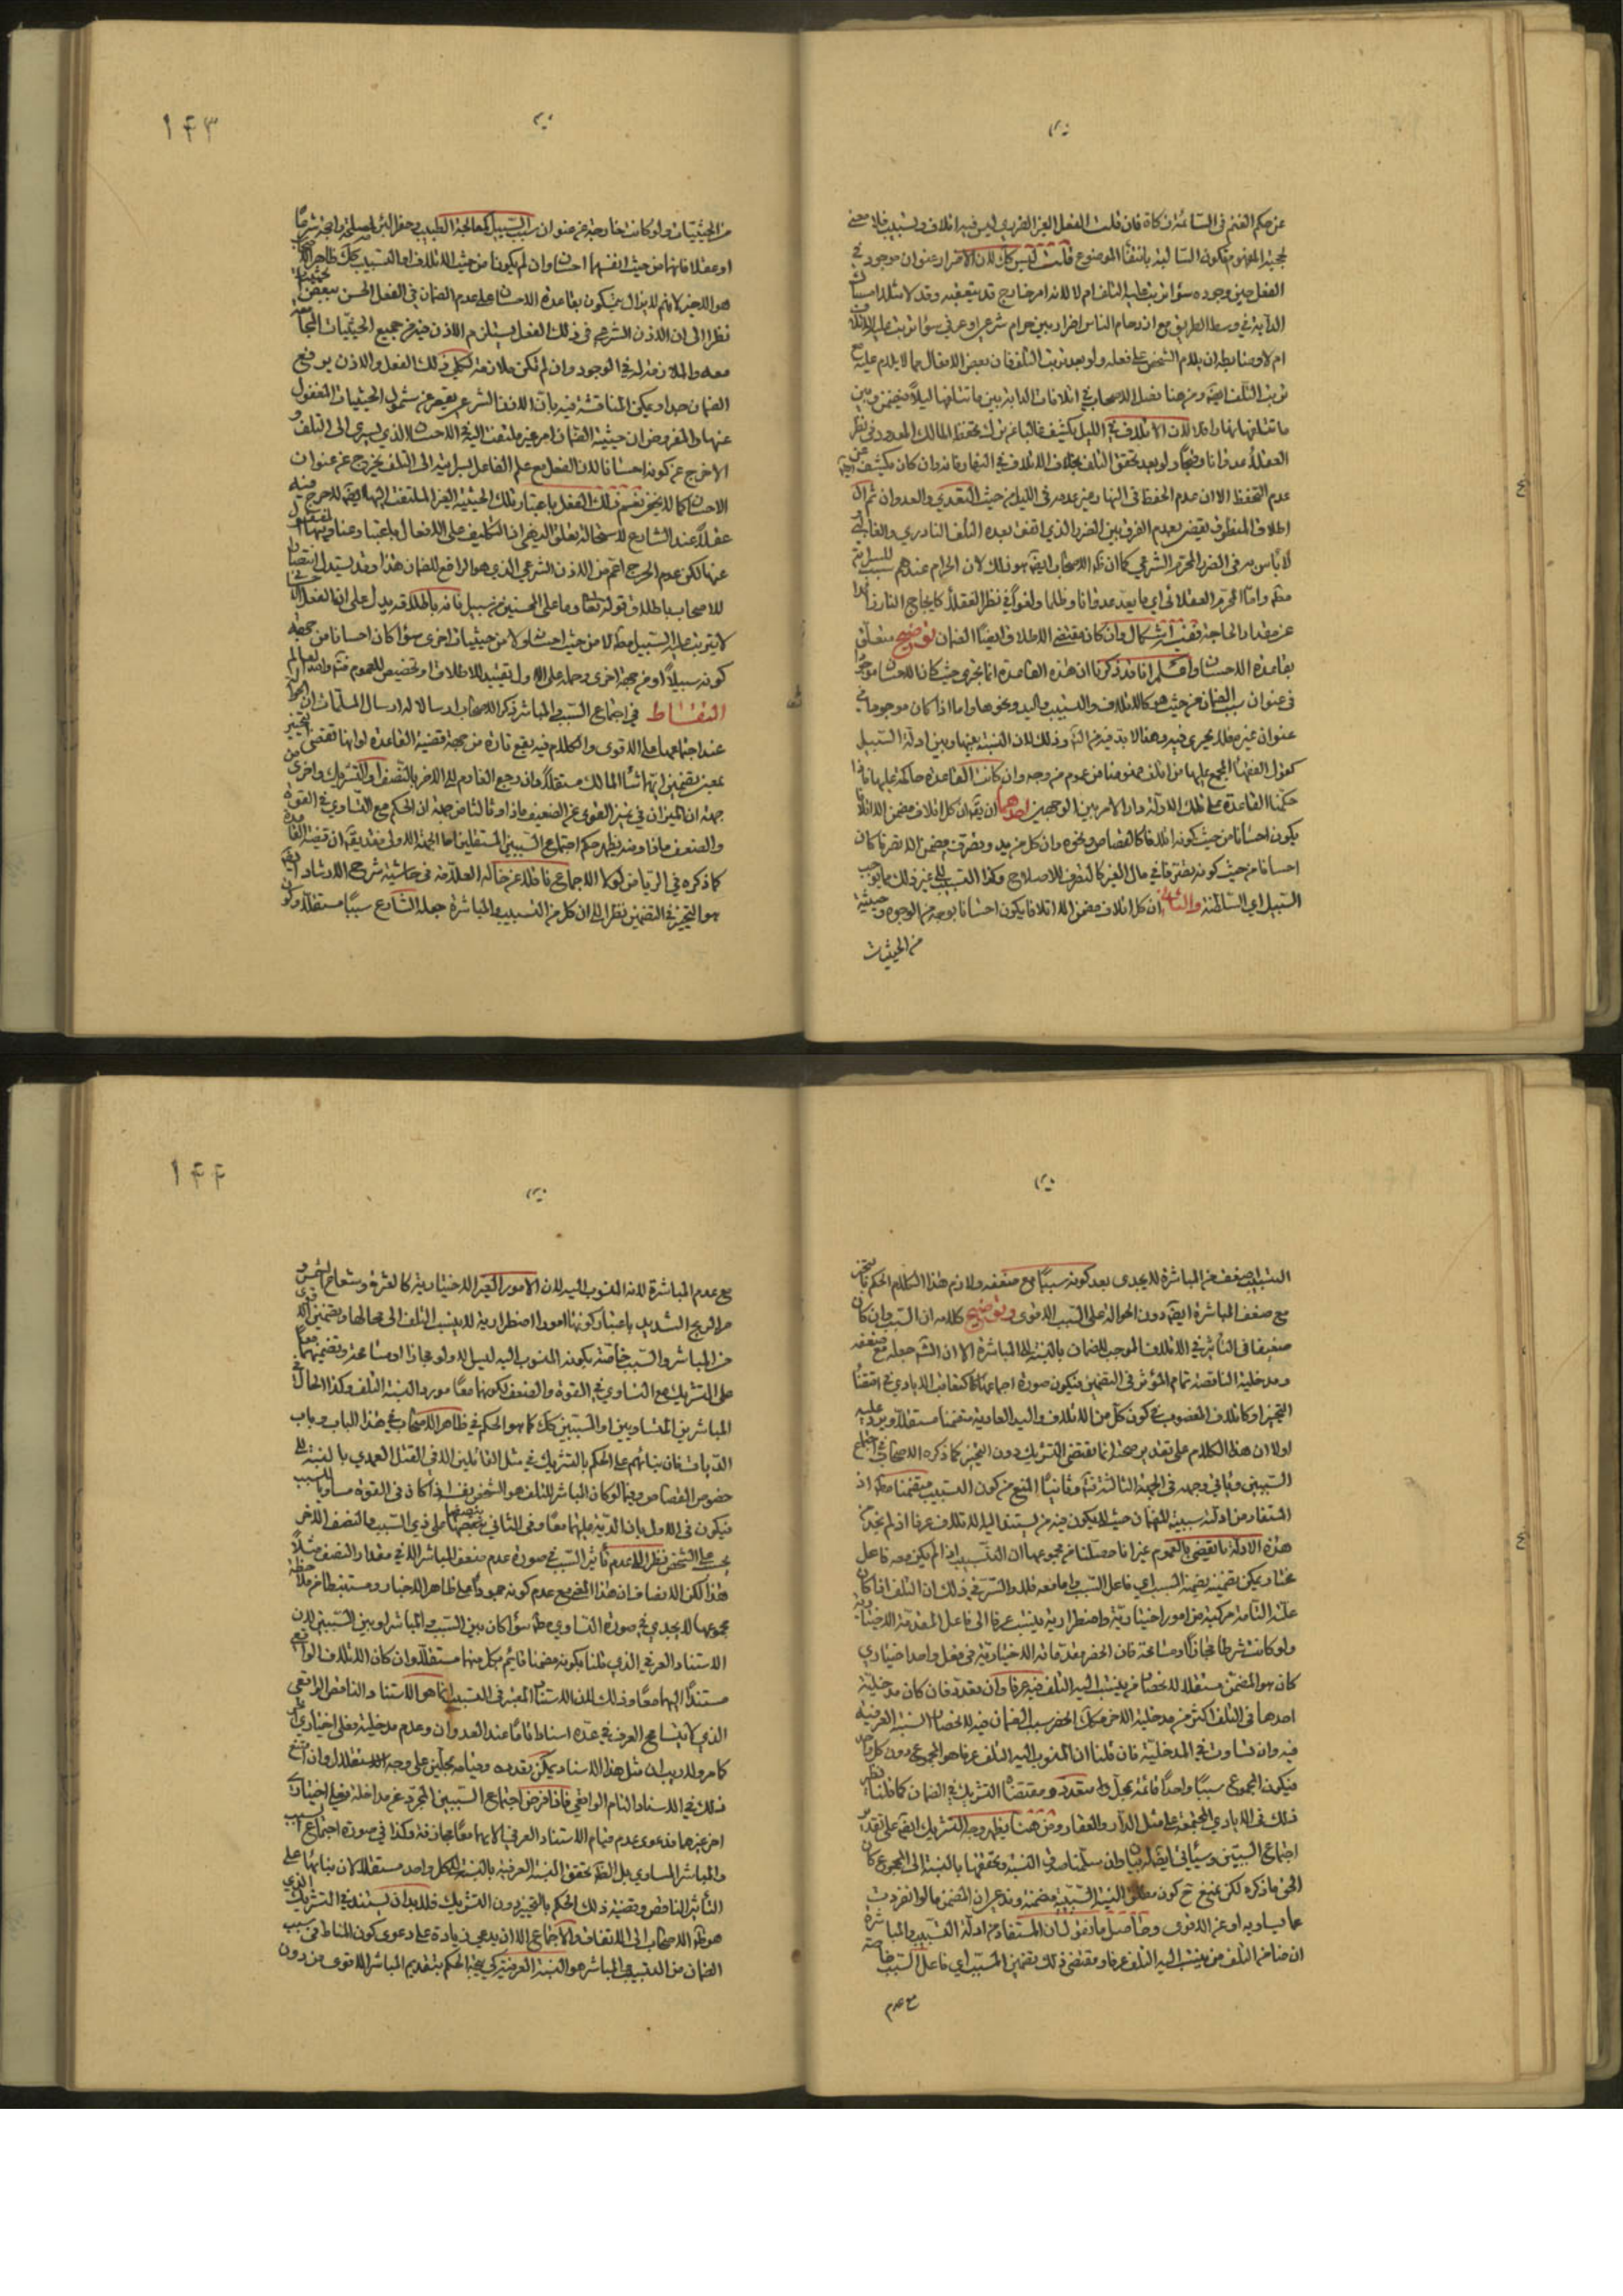 عن حكم الغنم في السائمة زكاة فان قلت الفعل الغير الضرري ليس فيه اتلاف وتسبيب فلا معنى
لحجية المفهوم فتكون السالبة بانتفاء الموضوع قلت ليس كك لان الاضرار عنوان موجود في
الفعل حين وجوده سواء ترتب عليه التلف ام لا لانه امر خارج قد يتعقبه وقد لا
الدابة في وسط الطريق مع ازدحام الناس اضرار بين حرام شرعي او عرفي سواء ترتب عليه الاتلاف
ام لا وضابطه ان يلام الشخص على فعله ولو بعد ترتب التلف فان بعض الافعال مما لا يلام عليه مع
ترتب التلف ايضا ومن هنا فصل الاصحاب في اتلافات الدابة بين ما تتلفها ليلا فيضمن وبين
ما تتلفها نهارا فلا لان الاتلاف في الليل يكشف غالبا عن ترك تحفظ المالك المعدود في نظر
العقلاء عدوانا وقبحا ولو بعد تحقق التلف بخلاف الاتلاف في النهار فانه وان كان يكشف عن
عدم التحفظ الا ان عدم الحفظ في النهار غير عدمه في الليل من حيث التعدي والعدوان ثم ان
اطلاق المنطوق يقتضي بعدم الفرق بين الضرر الذي اتفق بعده التلف النادري والغالبي
لا باس به في الضرر المحرم الشرعي كما ان ظ الاصحاب ايضا هو ذلك لان الحرام عندهم سبب للسراية
مطلقا واما المحرم العقلائي اي ما يعد عدوانا وظلما ولغوا في نظر العقلاء كايجاج النار زائدا
عن مقدار الحاجة ففيه اشكال وان كان مقتضى الاطلاق ايضا الضمان توضيح متعلق
بقاعدة الاحسان واعلم انا قد ذكرنا ان هذه القاعدة انما تجري حيث كانا الاحسان موجودا
في عنوان سبب الضمان من حيث هو كالاتلاف والتسبيب واليد ونحوها واما اذا كان موجودا في
عنوان غيره فلا يجري فيه وهذا لابد فيه من التامل وذلك لان النسبة بينها وبين ادلة السبيل
كقول الفقهاء المجمع عليها من اتلف هو ضامن عموم من وجه وان كانت القاعدة حاكمة عليها فاذا
حكمنا القاعدة على تلك الادلة دار الامر بين الوجهين احدهما ان يقال كل اتلاف مضمن الا اتلافا
يكون احسانا من حيث كونه اتلافا كالقصاص ونحوه وان كل من يد وتصرف مضمن الا تصرفا كان
احسانا من حيث كونه تصرفا في مال الغير كالتصرف للاصلاح وكذا التسبيب الى غير ذلك مما يوجب
السبيل اي السلطنة والثاني ان كل اتلاف مضمن الا اتلافا يكون احسانا بوجه من الوجوه وحيثية
من الحيثيات
١٤٣
من الحيثيات ولو كانت خارجة عن عنوان سبب السبيل كمعالجة الطبيب وحفر البئر لمصلحة راجحة شرعا
او عقلا فانها من حيث انفسهما احسان وان لم يكونا من حيث الاتلاف او التسبيب كك ظاهر الاصحاب
هو الاخير لانهم لا يزال يتمسكون بقاعدة الاحسان على عدم الضمان في الفعل الحسن ببعض حيثياته
نظرا الى ان الاذن الشرعي في ذلك الفعل يستلزم الاذن فيه من جميع الحيثيات المجامعة
معه والملازمة له في الوجود وان لم تكن ملازمة لكلي ذلك الفعل والاذن يرفع
الضمان جدا ويمكن المناقشة فيه بان اذن الشرع يقصر عن شمول الحيثيات المغفول
عنها والمفروض ان حيثية الضمان امر غير ملتفت اليه في الاحسان الذي يسري الى التلف و
الا خرج عن كونه احسانا لان الفعل مع علم الفاعل بسرايته الى التلف يخرج عن عنوان
الاحسان كما لا يخفى نعم ذلك الفعل باعتبار تلك الحيثية الغير الملتفت اليها ايضا لا حرج فيه
عقلا عند الشارع لاستحالة تعلق الـ التكليف على الافعال باعتبار عناوينها المغفول
عنها لكن عدم الحرج اعم من الاذن الشرعي الذي هو الرافع للضمان هذا وقد يستدل انتصارا
للاصحاب باطلاق قوله تعالى وما على المحسنين من سبيل فانه باطلاقه يدل على ان الفعل
لا يترتب عليه السبيل مطلقا لا من حيث احسان ولا من حيثيات اخرى سواء كان احسانا من جهة
كونه سبيلا او من جهة اخرى وحمله على الاول تقييد للاطلاق او تخصيص للعموم فتم والله العالم
التقاط في اجتماع السبب والمباشر ذكر الاصحاب ارسالا له ارسال المسلمات ان
عند اجتماعهما على الاقوى والكلام فيه يقع تارة من جهة قضية القاعدة لو انها تقتضي التخيير
بمعنى تضمين ايهما شاء المالك مستقلا وان رجع الغارم الى الاخر بالتصف او التشريك واخرى من
جهة ان الميزان في تميز القوي عن الضعيف ماذا وثالثا من جهة ان الحكم مع التساوي في القوة
والضعف ماذا ومنه يظهر حكم اجتماع السببين المستقلين اما الجهة الاولى فقد يقال ان قضية القاعدة
كما ذكره في الرياض لولا الاجماع ناقلا عن خاله العلامة في حاشية شرح الارشاد ايضا
هو التخيير في التضمين نظرا الى ان كل من التسبيب والمباشرة جعله الشارع سببا مستقلا وكون
التسبيب ضعف من المباشرة لا يجدى بعد كونه سببا مع ضعفه ولازم هذا الكلام الحكم بالتخيير
مع ضعف المباشرة ايضا دون الحوالة على السبب الاقوى وتوضيح كلامه ان السبب وان كان
ضعيفا في التاثير في الاتلاف الموجب للضمان بالنسبة الى المباشرة الا ان الشارع جعله مع ضعفه
ومدخلية الناقصة تمام المؤثر في التضمين فيكون صورة اجتماعهما كتعاقب الايادي في اقتضاء
التخيير او كاتلاف المغصوب في كون كل من الاتلاف واليد العادية متضمنا مستقلا ويرد عليه
اولا ان هذا الكلام على تقدير صحته انما يقتضي التشريك دون التخيير كما ذكره الاصحاب في اجتماع
السببين وياتي وجهه في الجهة الثالثة وثانيا المنع من كون التسبيب متضمنا مطلقا اذ
المستفاد من ادلة سببية للضمان حيث لا يكون فيه من يستند اليه الاتلاف عرفا اذ لم نجد من
هذه الادلة ما يقضي بالعموم غير انا حصلنا من مجموعها ان التسبيب اذا لم يكن معه فاعل
مختار يمكن تضمينه يضمنه السبب اي فاعل السبب واما معه فلا والسر في ذلك ان التلف اذا كان
علته التامة مركبة من امور اختيارية واضطرارية ينسب عرفا الى فاعل المقدمة الاختيارية
ولو كانت شرطا مجازا او مسامحة فان انحصر مقدماته الاختيارية في فعل واحد اختياري
كان هو المضمن مستقلا لانحصار من ينسب اليه التلف فيه عرفا وان تعددت فان كان مدخلية
احدها في التلف اكثر من مدخلية الاخر فكك انحصر سبب الضمان فيه لانحصار النسبة العرفية
فيه وان تساوت في المدخلية فان قلنا ان المنسوب اليه التلف عرفا هو المجموع دون كل واحد
فيكون المجموع سببا واحدا قائمة بمحل متعدد ومقتضاه التشريك في الضمان كما قلنا نظير
ذلك في الايادي المجتمعة على مثل الدار والعقار ومن هنا يظهر وجه التشريك ايضا على تقدير
اجتماع السببين وسياتي ايضا له بيان وان سلمنا صدق النسبة وتحققها بالنسبة الى المجموع كان
الحق ما ذكره لكن يمنع ح كون مطلق السببية مضمنة وندعي ان المضمن ما لو انفردت
عما يساويه او عن الاقوى وحاصل ما نقول ان المستفاد من ادلة التسبيب والمباشرة
ان ضامن التلف من ينسب اليه التلف عرفا ومقتضى ذلك تضمين المسبب اي فاعل السبب خاصة
مع عدم
١٤٤
مع عدم المباشرة لانه المنسوب اليه لان الامور الغير الاختيارية كالغرة وشعاع الشمس و
حر الريح الشديد باعتبار كونها امورا اضطرارية لا ينسب التلف الى محالها وتضمين الاقوى
من المباشر والسبب خاصة لكونه المنسوب اليه لا ولو مجازا او مسامحة وتضمينهما معا
على التشريك مع التساوي في القوة والضعف لكونهما معا موردا لنسبة التلف وكذا الحال في
المباشرين المتساويين او السببين كك كما هو الحكم في ظاهر الاصحاب في هذا الباب وباب
الديات فان بنائهم على الحكم بالتشريك في مثل القائلين الا في القتل العمدي بالنسبة الى
خصوص القصاص وفيما لو كان المباشر للتلف هو الشخص بنفسه اذا كان في القوة مساويا للسبب
فيكون في الاول بان الدية عليهما معا وفي الثاني بنصفها على ذي السبب والنصف الاخر
يحسب على الشخص نظرا الى عدم تاثير السبب في صورة عدم ضعف المباشر الا في مقدار النصف مثلا
هذا لكن الانصاف ان هذا المنع مع عدم كونه جمودا على ظاهر الاخبار ومستنبطا من ملاحظة
مجموعها لا يجدي في صورة التساوي مطلقا سواء كان بين السبب والمباشر او بين السببين لان
الاستناد العرفي الذي قلنا بكونه مضمنا قائم بكل منهما مستقلا وان كان الاتلاف الواقع
مستندا اليهما معا وذلك لان الاستناد المعتبر في التسبيب انما هو الاستناد الناقص الواقعي
الذي يتسامح العرف في عده اسنادا تاما عند العدوان وعدم مدخلية فعل اختياري
كما مر ولا ريب ان مثل هذا الاسناد يمكن تعدده وقيامه بمحلين على وجه الاستقلال وان امتنع
ذلك في الاسناد التام الواقعي فاذا فرض اجتماع السببين المجرد عن مداخلة فعل اختياري
اخر غيرهما فدعوى عدم قيام الاستناد العرفي الا بهما معا مجازفة وكذا في صورة اجتماع السبب
والمباشر المساوي بل الظ تحقق النسبة العرفية بالنسبة الى كل واحد مستقلا لان بنائها على
التأثير الناقص وقضية ذلك الحكم بالتخيير دون التشريك فلا بد ان يستند في التشريك الذي
هو ظ الاصحاب الى الاتفاق والاجماع الا ان يدعى زيادة على دعوى كون المناط في سبب
الضمان من التسبيب والمباشر هو النسبة العرفية كي يتجه الحكم بتقديم المباشر الاقوى من دون